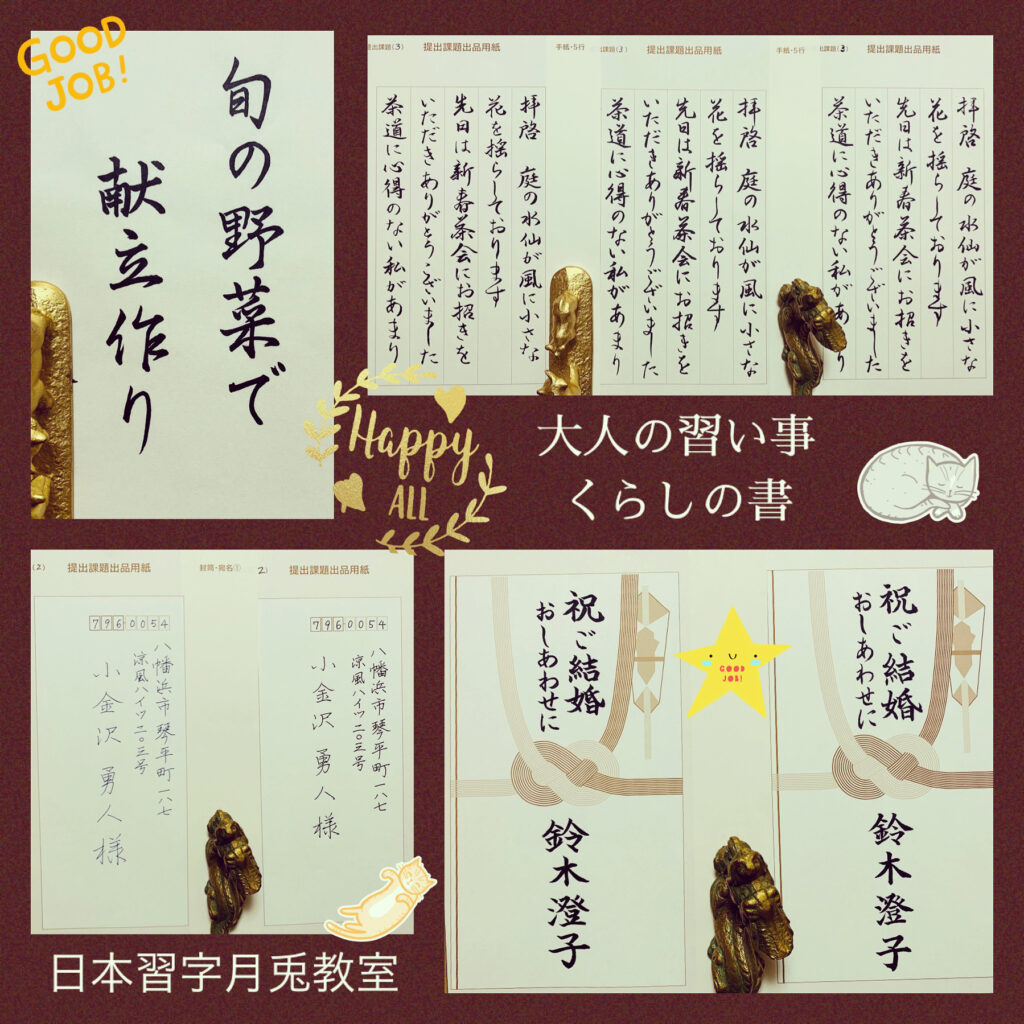 GOOD
JOB!
旬の野菜で
献立作り
出課題(3) 提出課題出品用紙
拝啓 庭の水仙が風に小さな
花を揺らしております
先日は新春茶会にお招きを
いただきありがとうございました
茶道に心得のない私があまり
手紙・5行
課題(3) 提出課題出品用紙
拝啓 庭の水仙が風に小さな
花を揺らしております
先日は新春茶会にお招きを
いただきありがとうございました
茶道に心得のない私があまり
手紙・5行
出課題(3) 提出課題出品用紙
拝啓 庭の水仙が風に小さな
花を揺らしております
先日は新春茶会にお招きを
いただきありがとうございました
茶道に心得のない私があ り
Happy
ALL
大人の習い事
くらしの書
(2) 提出課題出品用紙
7960054
八幡浜市琴平町一八七
涼風ハイツ二〇三号
小金沢 勇人様
封筒・宛名①
2) 提出課題出品用紙
7960054
八幡浜市琴平町一八七
涼風ハイツ二〇三号
小金沢 勇人様
祝ご結婚
おしあわせに
鈴木澄子
GOOD
JOB!
祝ご結婚
おしあわせに
鈴木澄子
日本習字月兎教室